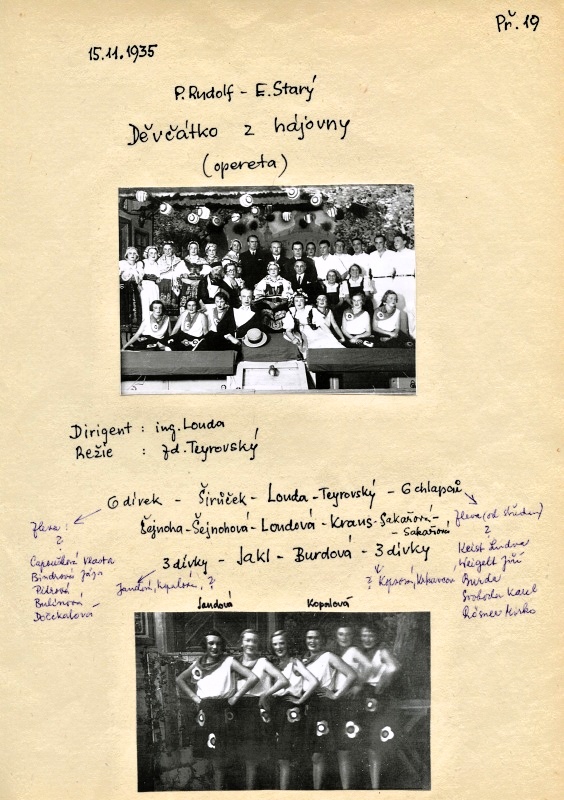 Př. 19
15.11.1935
P. Rudolf - E. Starý
Děvčátko z hájovny
(opereta)
Dirigent : ing. Louda
Režie : Zd. Teyrovský
6 dívek - Širůček - Louda - Teyrovský - 6 chlapců
Šejnoha - Šejnohová - Loudová - Kraus - Sakařová -
- Sakařová
3 dívky - Jakl - Burdová - 3 dívky
Zleva :
?
Vlasta
Bindrová
Petrová
Bulínová
Dočekalová
Jandová, Kopalová, ?
Zleva (od středu)
?
Keist
Weigelt Jiří
Burda
Svoboda Karel
Rösner Mirko
?
Jandová
Kopalová